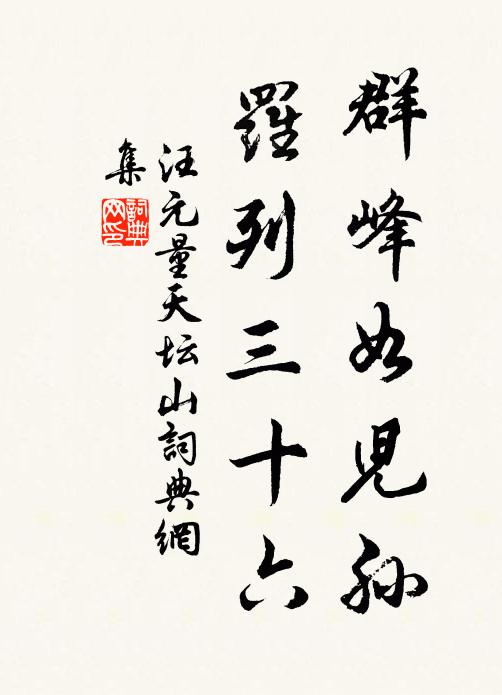 群峰如兒孫
羅列三十六
汪元量天坛山詞典網
集
詞典
网印